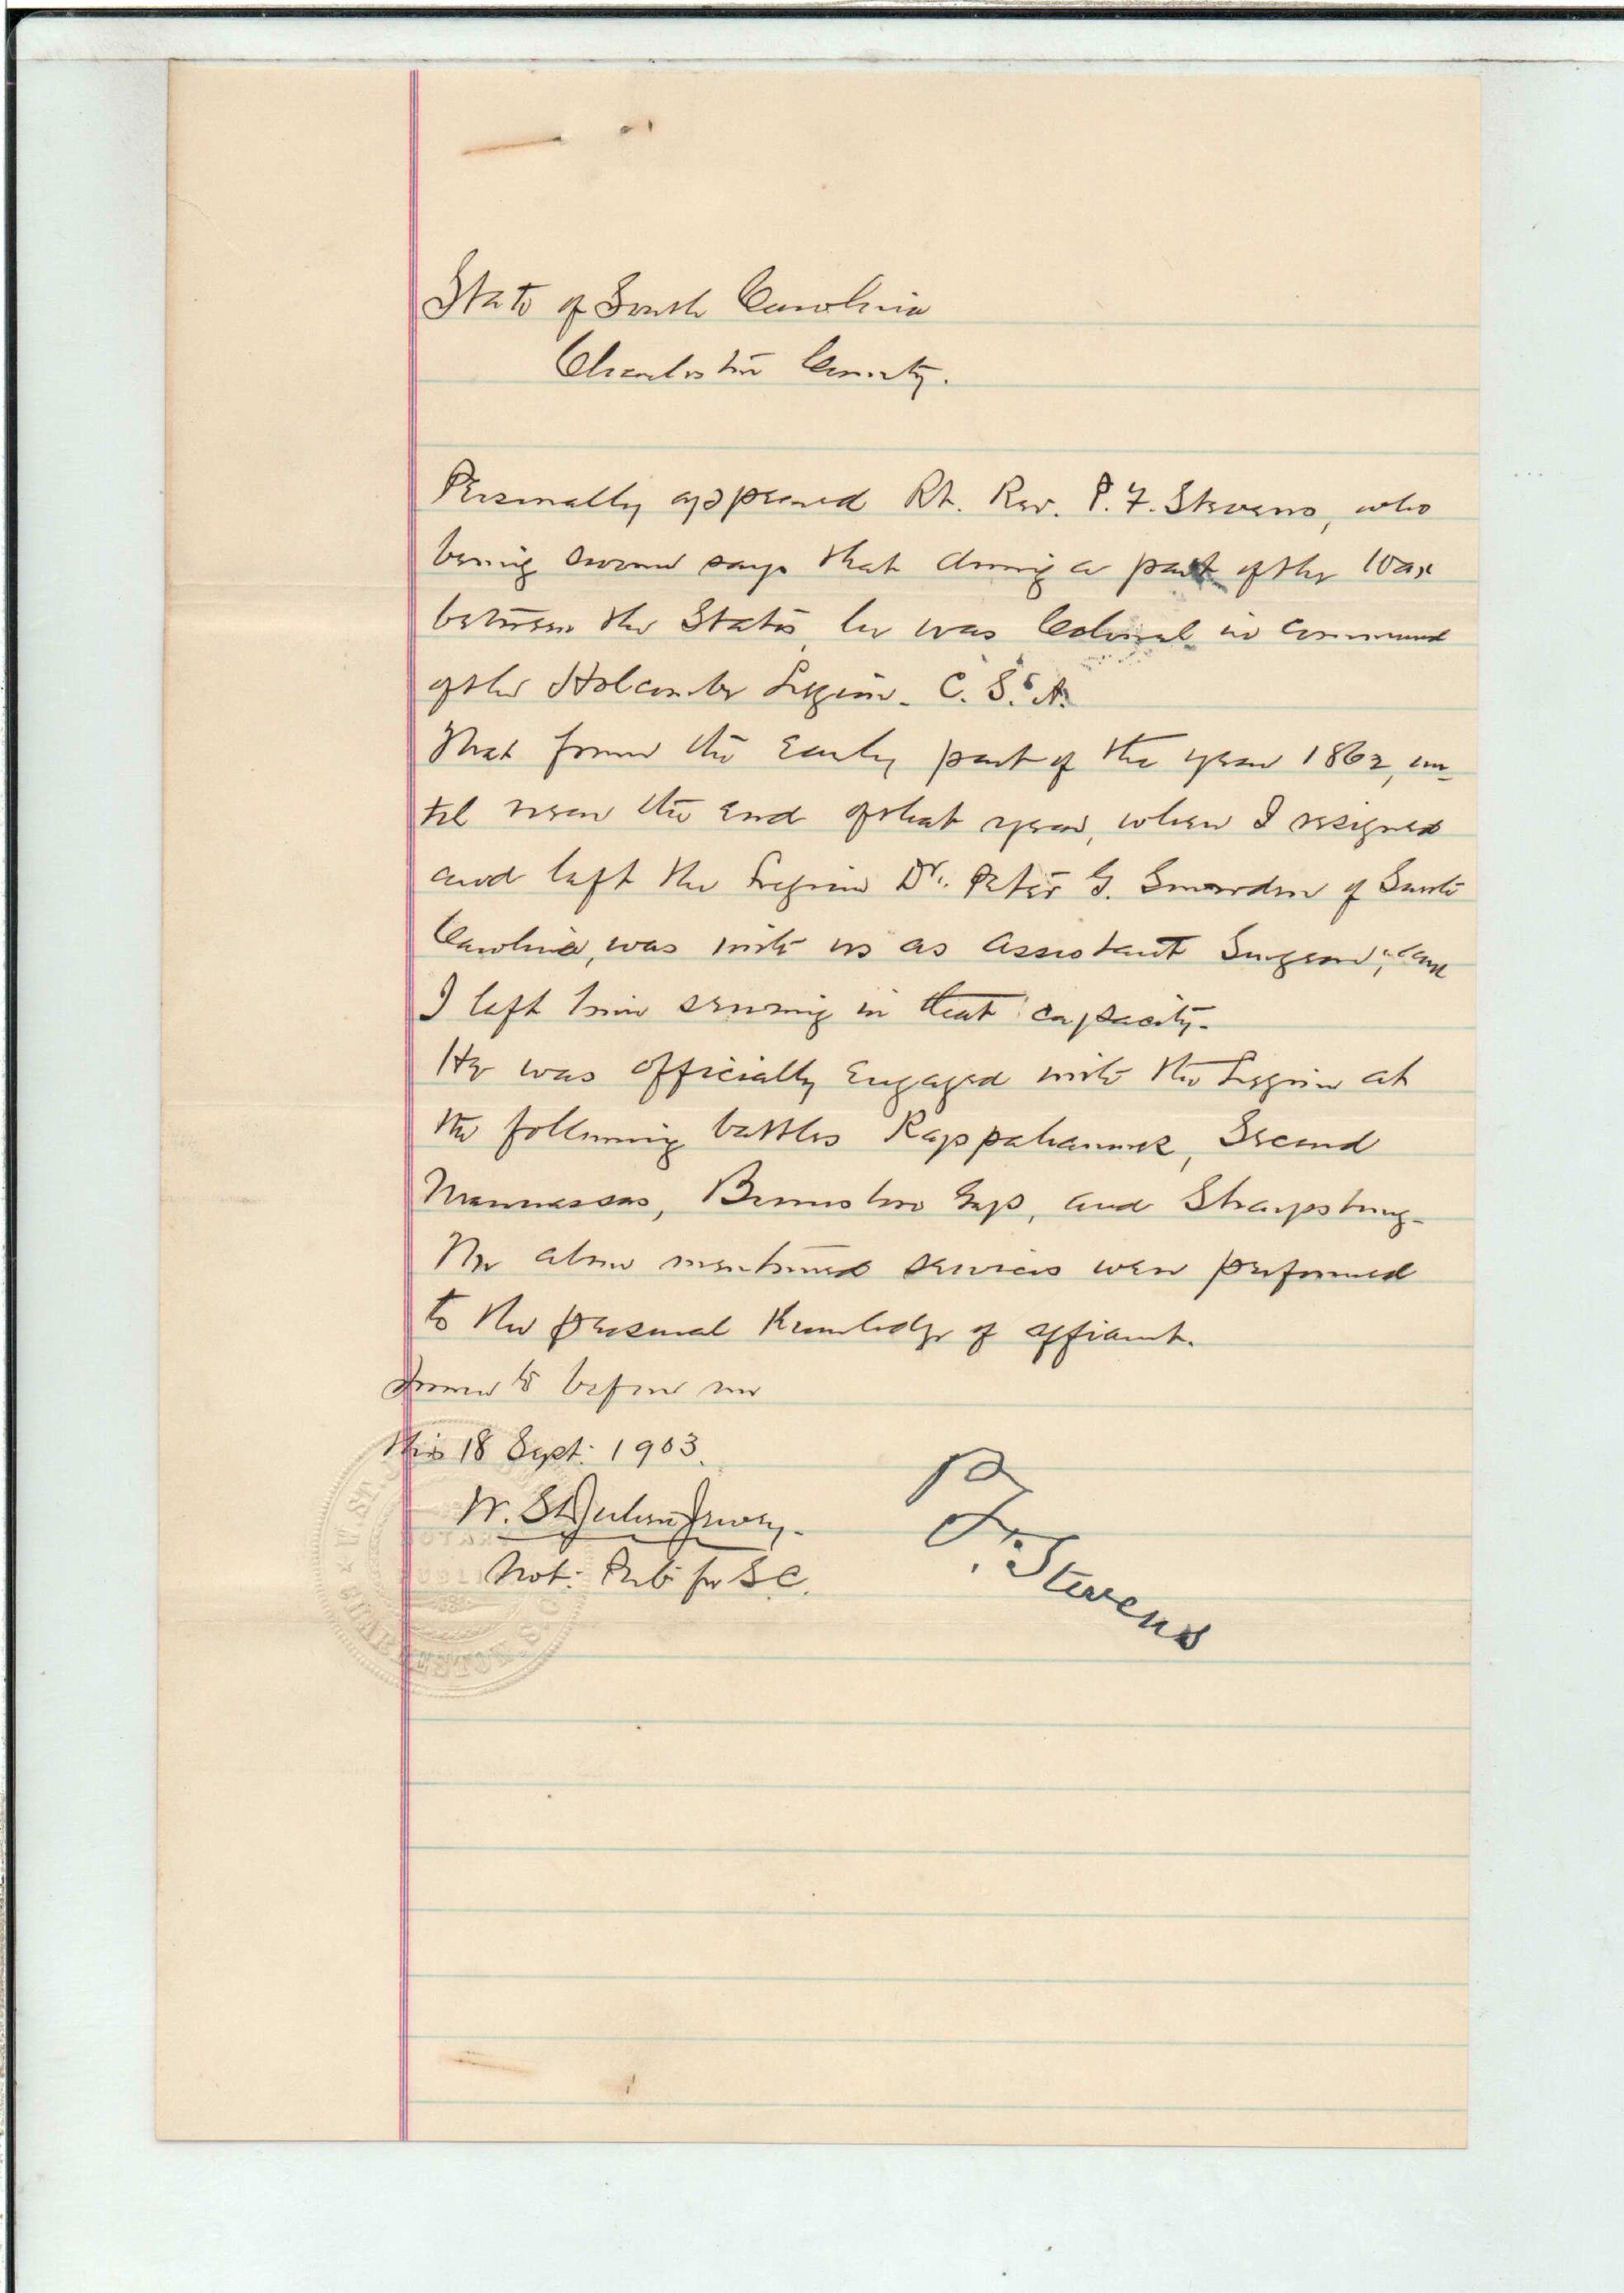 State of South Carolina
Charleston County.
Personally appeared Rt. Rev. P. F. Stevens, who
being sworn says that during a part of the War
between the States, he was Colonel in command
of the Holcombe Legion. C. S. A.
That from the early part of the year 1862, un-
til near the end of that year, when I resigned
and left the Legion Dr. Peter G. of South
Carolina, was with us as Assistant Surgeon, and
I left him serving in that capacity.
He was officially engaged with the Legion at
the following battles Rappahannock, Second
Mannassas, Gap, and Sharpsburg.
The above mentioned services were performed
to the personal knowledge of affiant.
Sworn to before me
this 18 Sept: 1903.
W. St Julien Jervey.
Not: Pub: for S.C.
P. F. Stevens
W. ST. J
CHARLESTON. S. C.